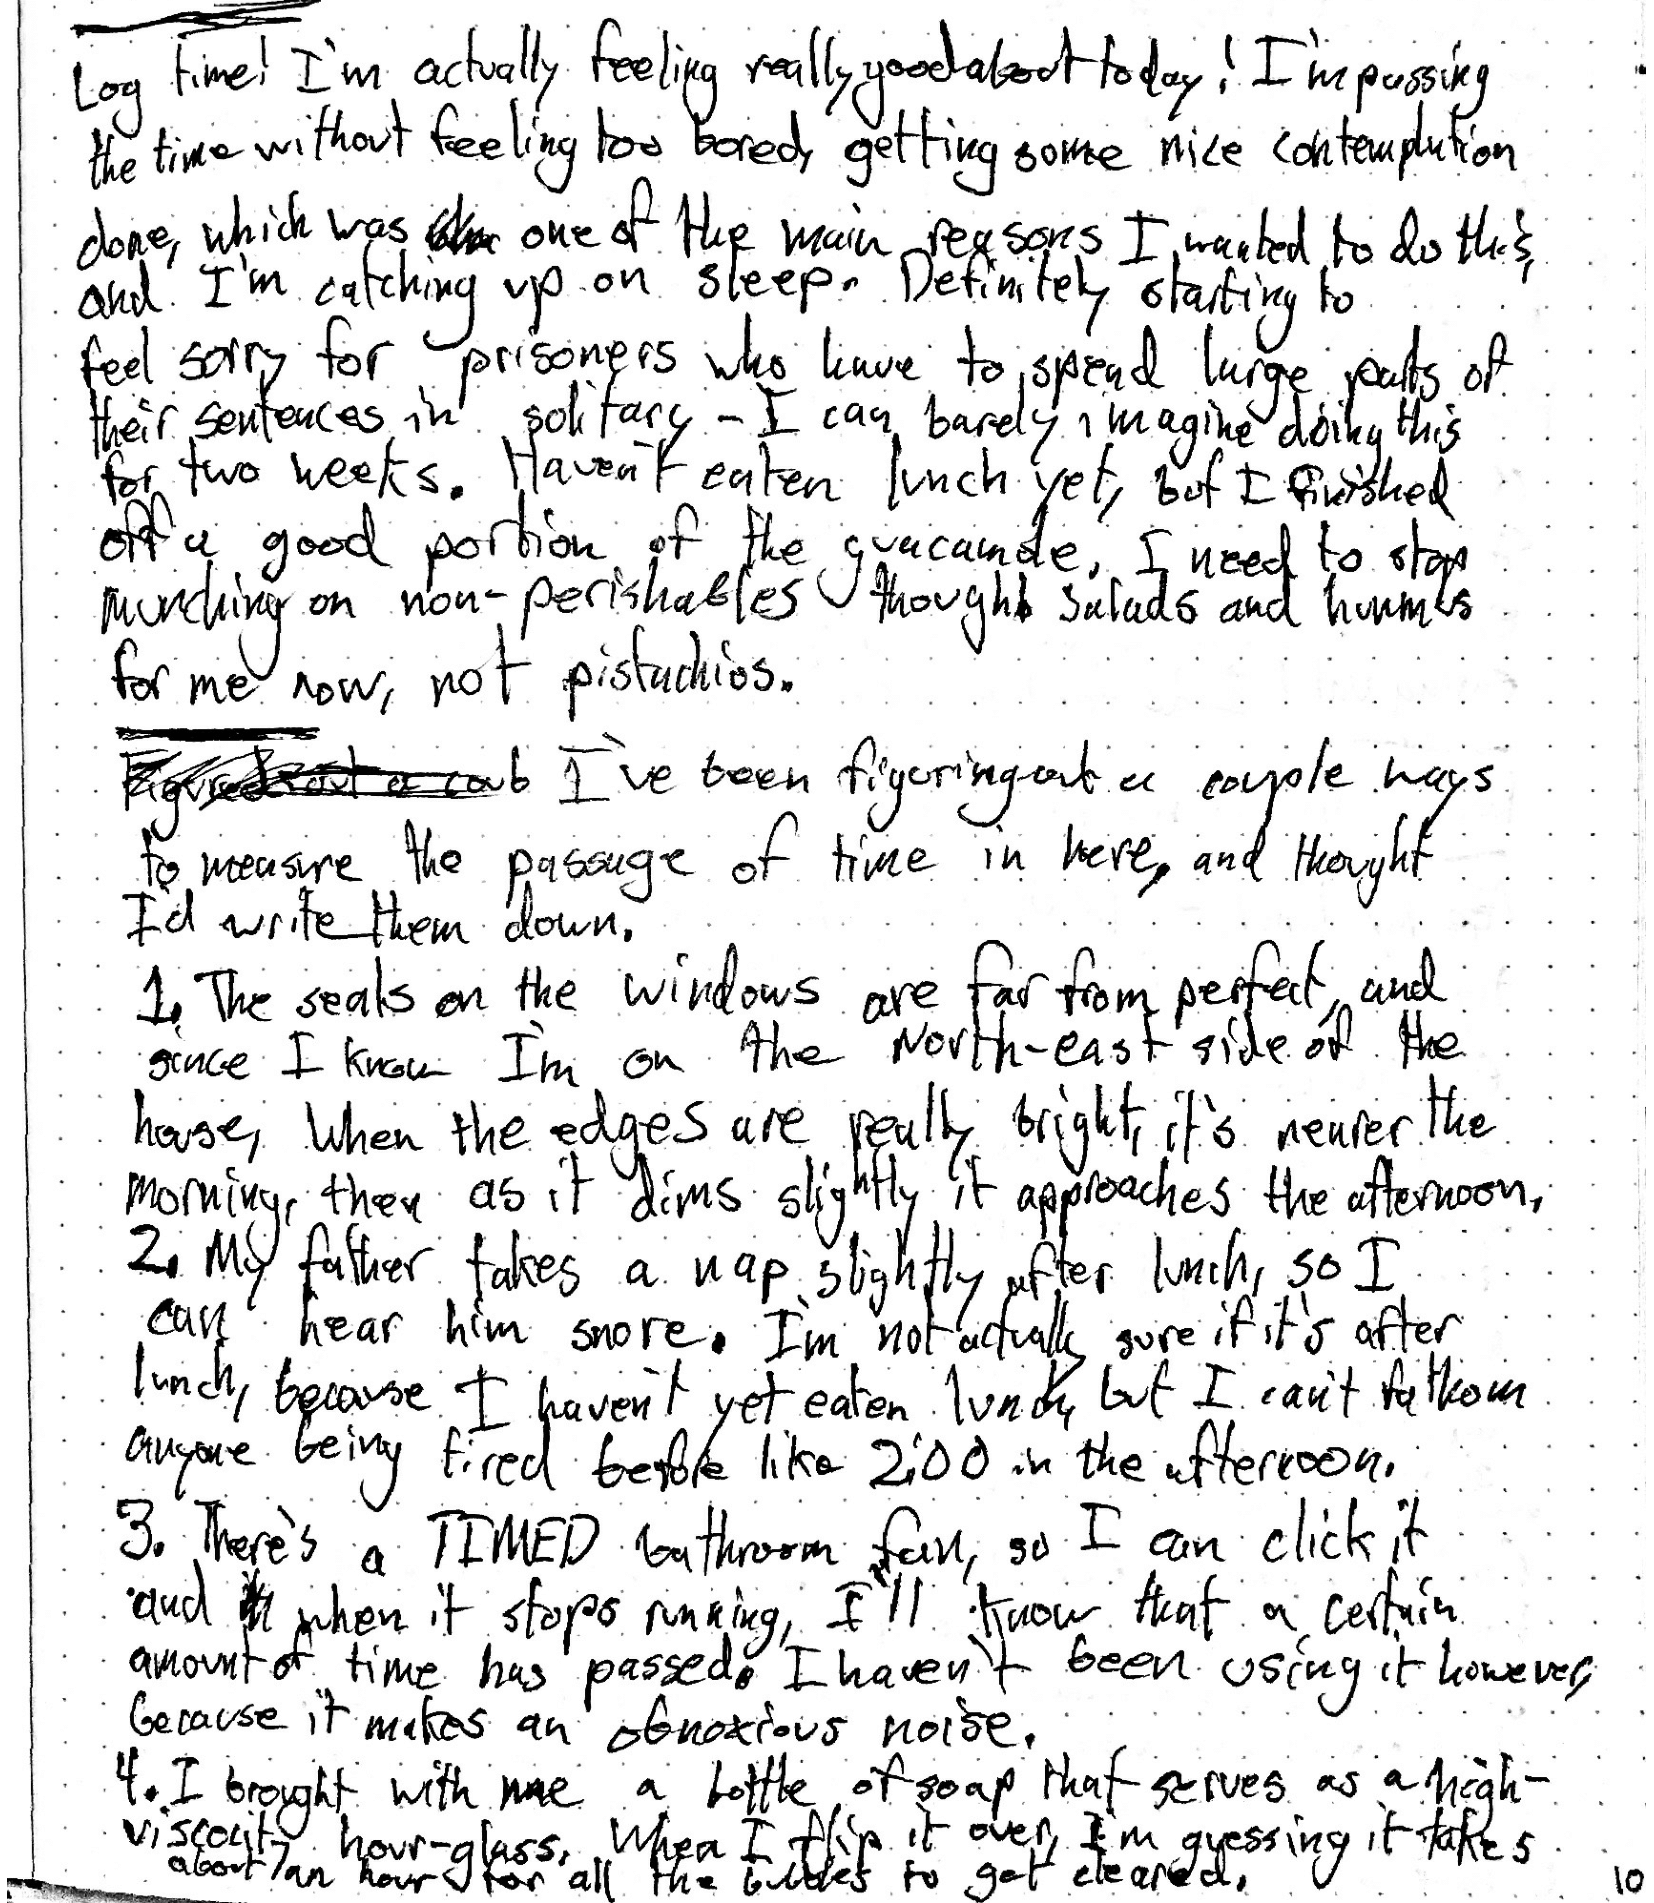 Log time! I'm actually feeling really good about today! I'm passing
the time without feeling too bored, getting some nice contemplation
done, which was one of the main reasons I wanted to do this,
and I'm catching up on sleep. Definitely starting to
feel sorry for prisoners who have to spend large parts of
their sentences in solitary - I can barely imagine doing this
for two weeks. Haven't eaten lunch yet, but I finished
off a good portion of the guacamole. I need to stop
munching on non-perishables though. Salads and hummus
for me now, not pistachios.
Figured out a coub I've been figuring out a couple ways
to measure the passage of time in here, and thought
I'd write them down.
1. The seals on the windows are far from perfect, and
since I know I'm on the North-east side of the
house, when the edges are really bright, it's nearer the
morning, then as it dims slightly it approaches the afternoon.
2. My father takes a nap slightly after lunch, so I
can hear him snore. I'm not actually sure if it's after
lunch, because I haven't yet eaten lunch, but I can't fathom
anyone being tired before like 2:00 in the afternoon.
3. There's a TIMED bathroom fan, so I can click it
and when it stops running, I'll know that a certain
amount of time has passed. I haven't been using it however,
because it makes an obnoxious noise.
4. I brought with me a bottle of soap that serves as a high-
viscocity hour-glass. When I flip it over, I'm guessing it takes
about an hour for all the bubbles to get cleared.
10